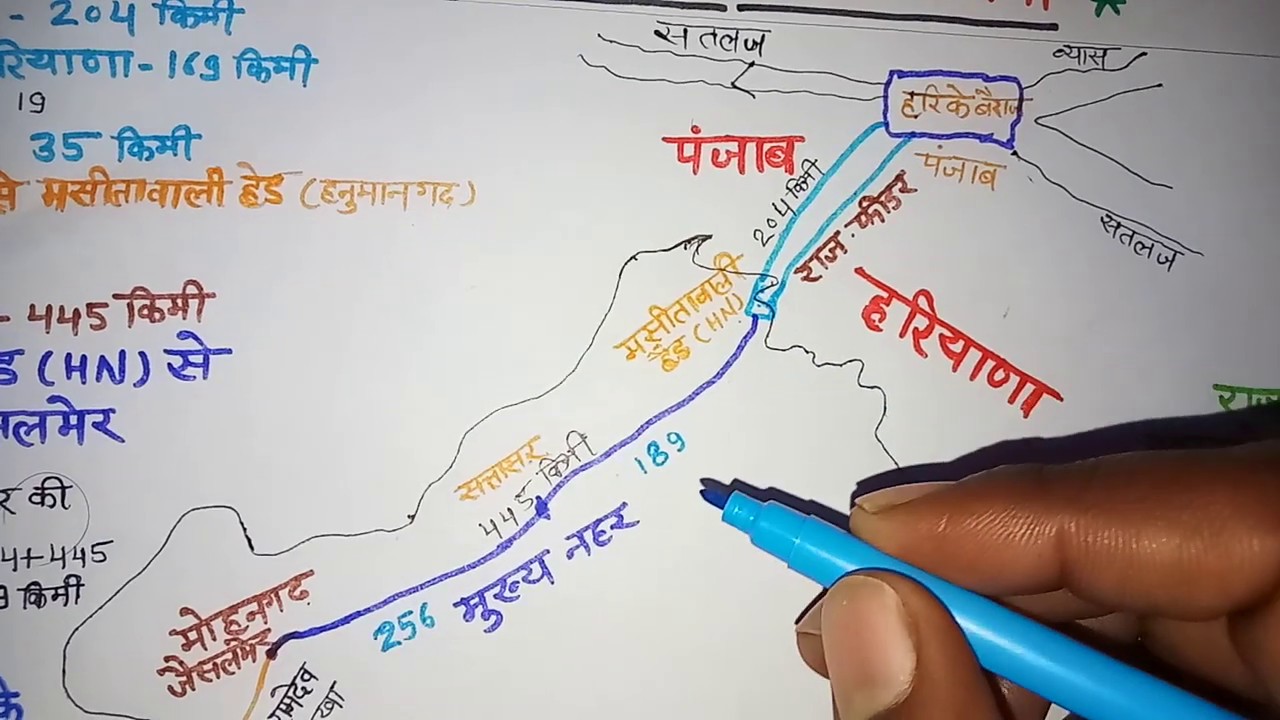 - 204 किमी
रियाणा - 169 किमी
19
35 किमी
से मसीतावाली हेड (हनुमानगढ)
- 445 किमी
ड (HN) से
सलमेर
र की
4+445
9 किमी
के
सतलज
व्यास
हरिके बैराज
पंजाब
पंजाब
204 किमी
राज. फीडर
सतलज
मसीतावाली
हैड (HN)
हरियाणा
राज
सत्तासर
445 किमी
189
मुख्य नहर
256
मोहनगढ
जैसलमेर